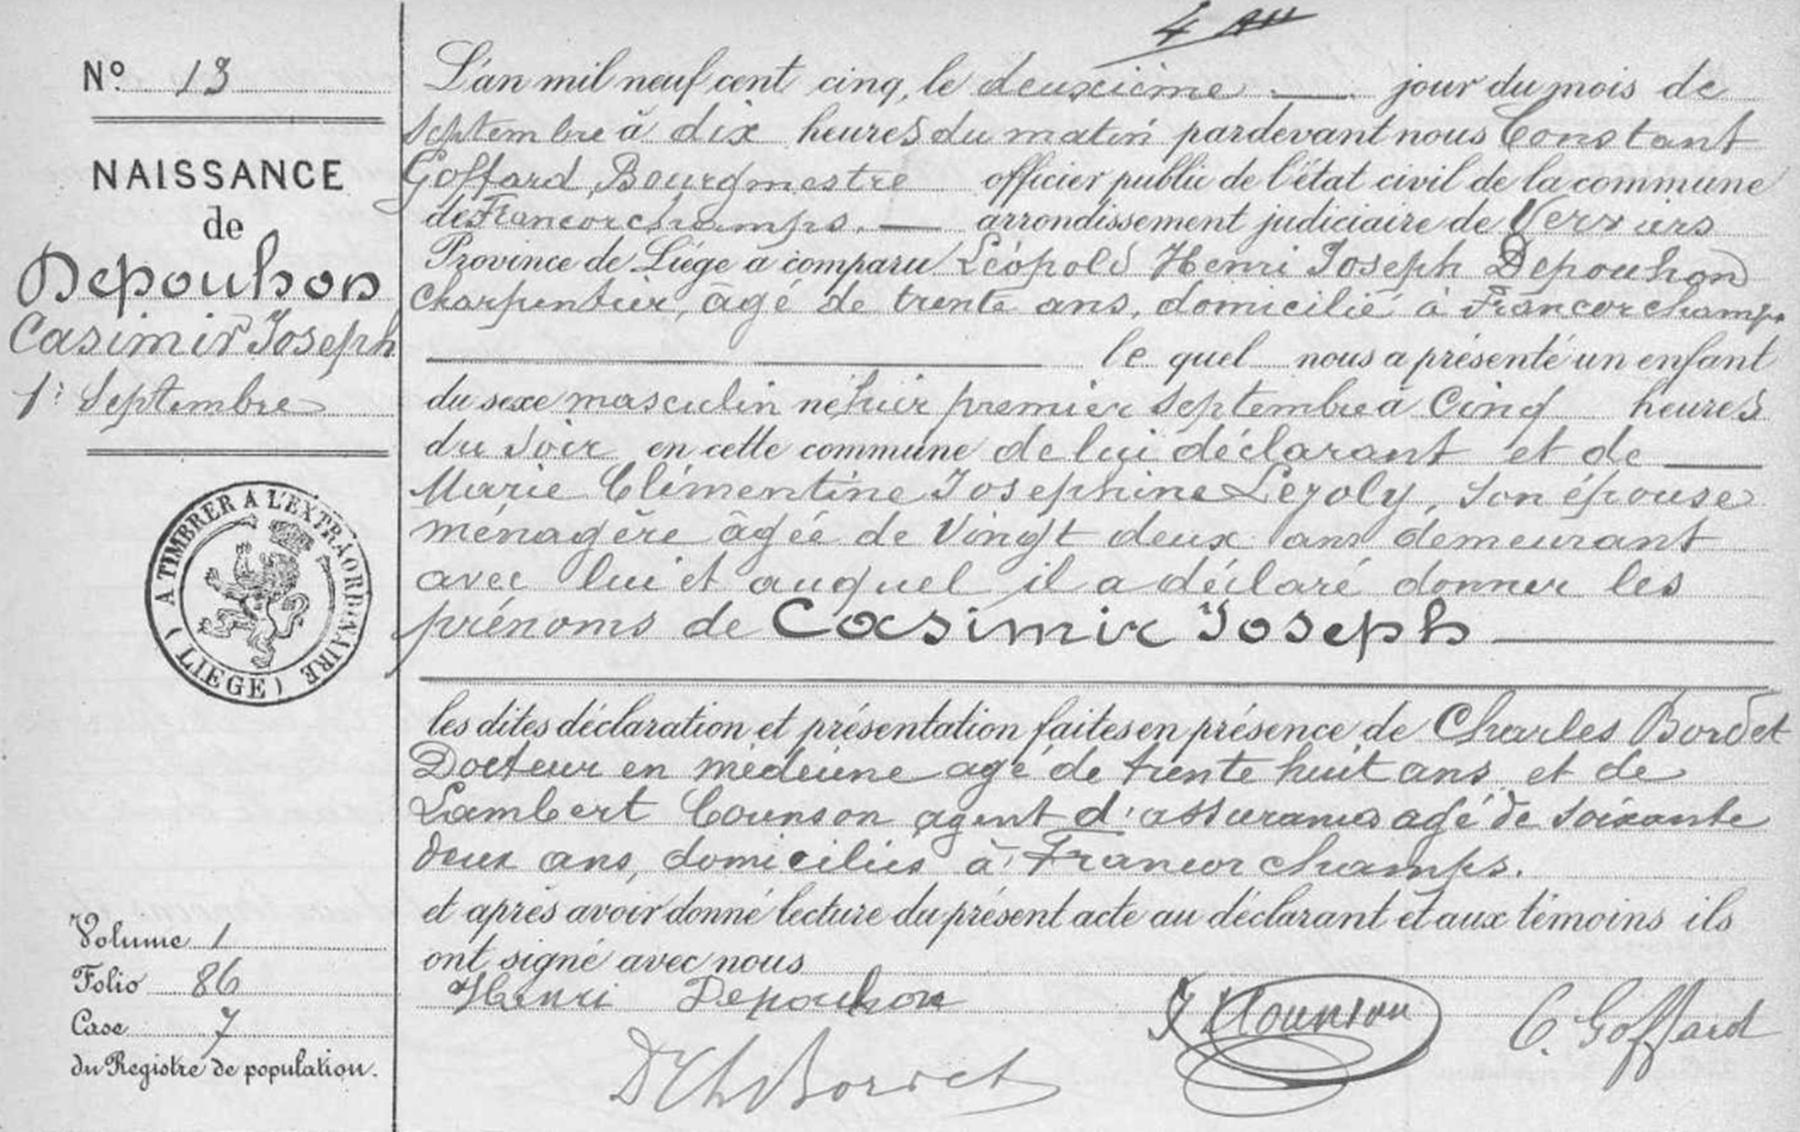 N° 13
NAISSANCE
de
Depouhon
Casimir Joseph
1r Septembre
(A TIMBRER A L'EXTRAORDINAIRE
(LIEGE)
Volume 1
Folio 86
Case 7
du Registre de population.
4
L'an mil neuf cent cinq, le deuxième jour du mois de
Septembre à dix heures du matin pardevant nous Constant
Goffard, Bourgmestre officier public de l'état civil de la commune
de Francorchamps. arrondissement judiciaire de Verviers
Province de Liége a comparu Léopold Henri Joseph Depouhon
charpentier, âgé de trente ans, domicilié à Francorchamps
le quel nous a présenté un enfant
du sexe masculin né hier premier septembre à Cinq heures
du soir en cette commune de lui déclarant et de
Marie Clémentine Josephine Lezoly, son épouse
ménagère âgée de Vingt deux ans demeurant
avec lui et auquel il a déclaré donner les
prénoms de Casimir Joseph
les dites déclaration et présentation faites en présence de Charles Bordet
Docteur en médecine agé de trente huit ans et de
Lambert Counson agent d'assurances agé de soixante
deux ans, domiciliés à Francorchamps.
et après avoir donné lecture du présent acte au déclarant et aux témoins ils
ont signé avec nous
Henri Depouhon
Counson
C. Goffard
Dr Ch Bordet